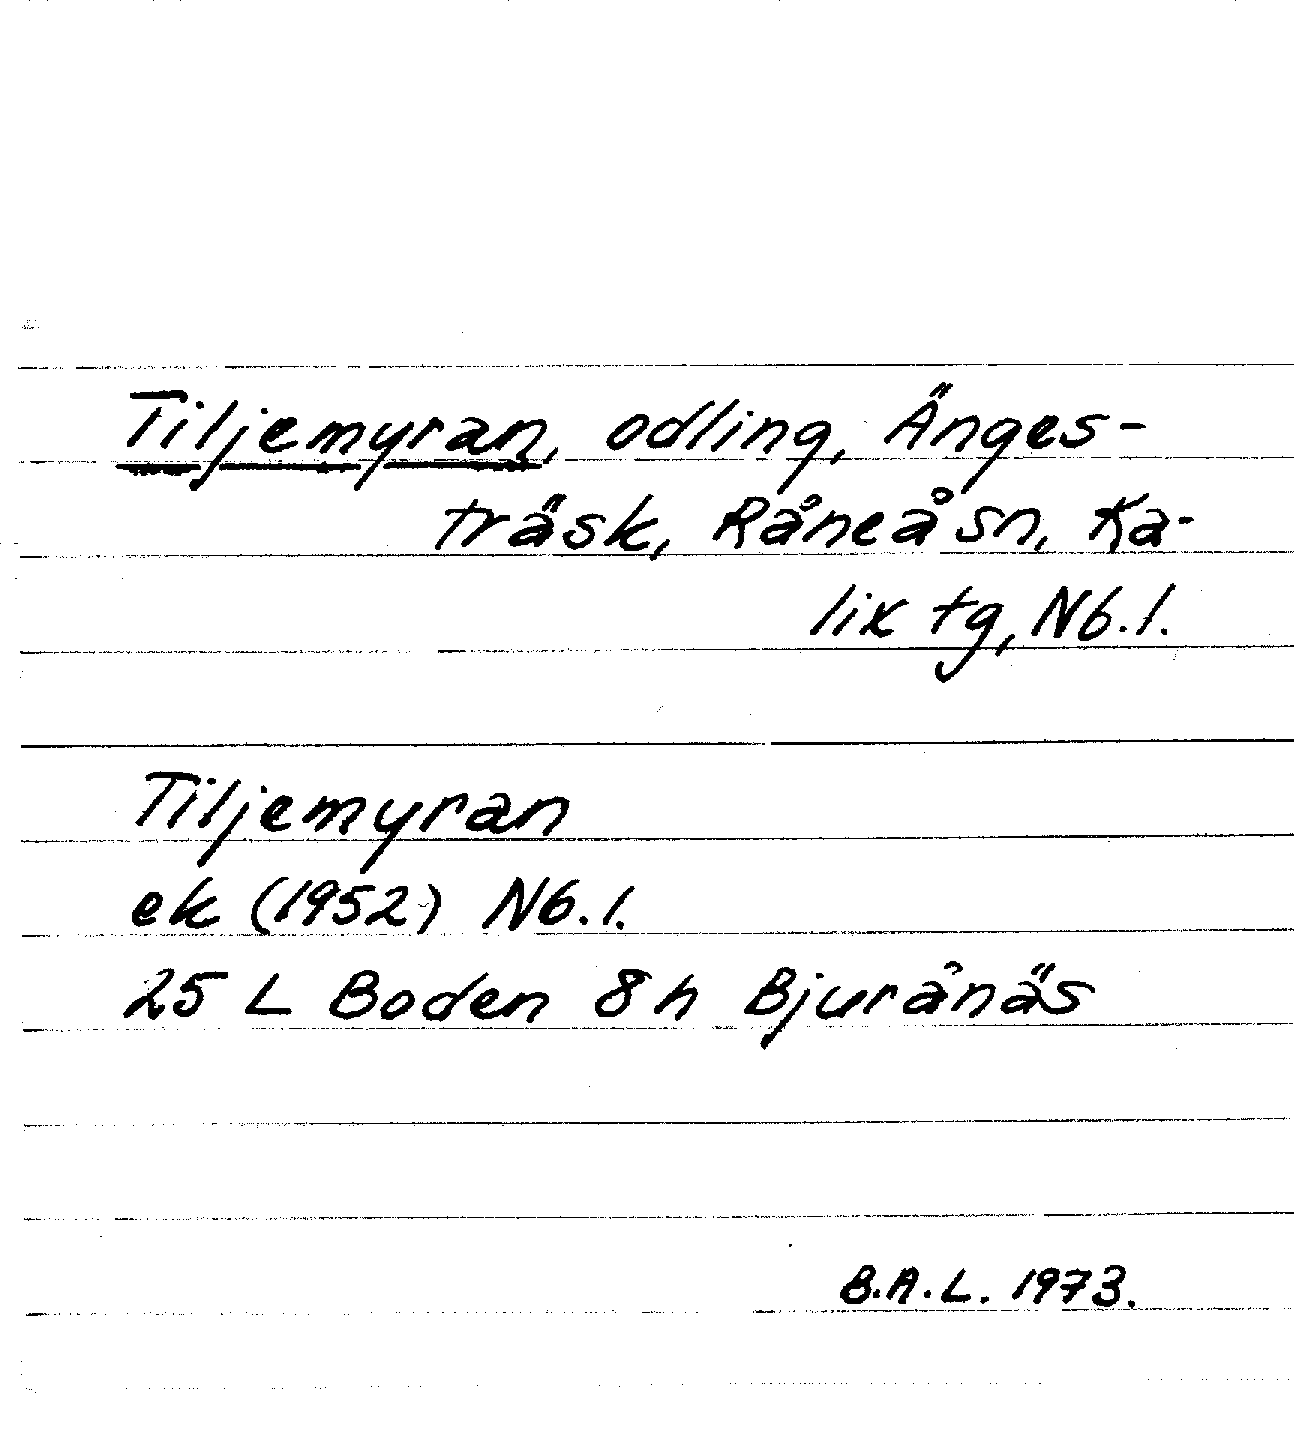 Tiljemyran, odling, Änges-
träsk, Råneå sn, Ka-
lix tg, Nb. l.
Tiljemyran
ek (1952) Nb. l.
25 L Boden 8 h Bjurånäs
B.A.L. 1973.